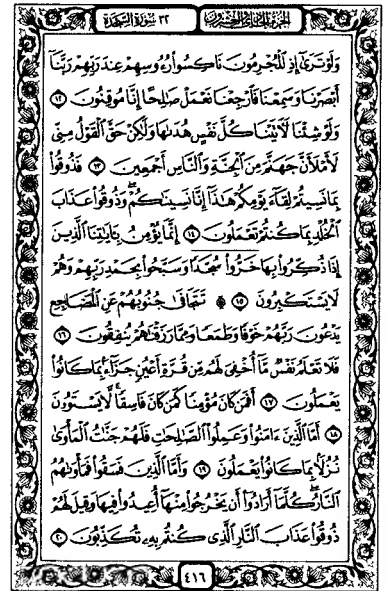 الجزء الحادي والعشرون
٣٢ سورة السجدة
وَلَوْ تَرَىٰٓ إِذِ ٱلْمُجْرِمُونَ نَاكِسُوا۟ رُءُوسِهِمْ عِندَ رَبِّهِمْ رَبَّنَآ
أَبْصَرْنَا وَسَمِعْنَا فَٱرْجِعْنَا نَعْمَلْ صَٰلِحًا إِنَّا مُوقِنُونَ ١٢
وَلَوْ شِئْنَا لَءَاتَيْنَا كُلَّ نَفْسٍ هُدَىٰهَا وَلَٰكِنْ حَقَّ ٱلْقَوْلُ مِنِّى
لَأَمْلَأَنَّ جَهَنَّمَ مِنَ ٱلْجِنَّةِ وَٱلنَّاسِ أَجْمَعِينَ ١٣ فَذُوقُوا۟
بِمَا نَسِيتُمْ لِقَآءَ يَوْمِكُمْ هَٰذَآ إِنَّا نَسِينَٰكُمْ ۖ وَذُوقُوا۟ عَذَابَ
ٱلْخُلْدِ بِمَا كُنتُمْ تَعْمَلُونَ ١٤ إِنَّمَا يُؤْمِنُ بِـَٔايَٰتِنَا ٱلَّذِينَ
إِذَا ذُكِّرُوا۟ بِهَا خَرُّوا۟ سُجَّدًا وَسَبَّحُوا۟ بِحَمْدِ رَبِّهِمْ وَهُمْ
لَا يَسْتَكْبِرُونَ ١٥ ۩ تَتَجَافَىٰ جُنُوبُهُمْ عَنِ ٱلْمَضَاجِعِ
يَدْعُونَ رَبَّهُمْ خَوْفًا وَطَمَعًا وَمِمَّا رَزَقْنَٰهُمْ يُنفِقُونَ ١٦
فَلَا تَعْلَمُ نَفْسٌ مَّآ أُخْفِىَ لَهُم مِّن قُرَّةِ أَعْيُنٍ جَزَآءًۢ بِمَا كَانُوا۟
يَعْمَلُونَ ١٧ أَفَمَن كَانَ مُؤْمِنًا كَمَن كَانَ فَاسِقًا ۚ لَّا يَسْتَوُۥنَ
١٨ أَمَّا ٱلَّذِينَ ءَامَنُوا۟ وَعَمِلُوا۟ ٱلصَّٰلِحَٰتِ فَلَهُمْ جَنَّٰتُ ٱلْمَأْوَىٰ
نُزُلًۢا بِمَا كَانُوا۟ يَعْمَلُونَ ١٩ وَأَمَّا ٱلَّذِينَ فَسَقُوا۟ فَمَأْوَىٰهُمُ
ٱلنَّارُ ۖ كُلَّمَآ أَرَادُوٓا۟ أَن يَخْرُجُوا۟ مِنْهَآ أُعِيدُوا۟ فِيهَا وَقِيلَ لَهُمْ
ذُوقُوا۟ عَذَابَ ٱلنَّارِ ٱلَّذِى كُنتُم بِهِۦ تُكَذِّبُونَ ٢٠
٤١٦